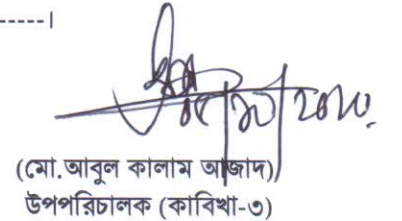 -----।
(মো.আবুল কালাম আজাদ)
উপপরিচালক (কাবিখা-৩)